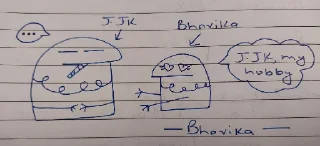 JJK
Bhavika
...
JJK, my
hobby
— Bhavika —